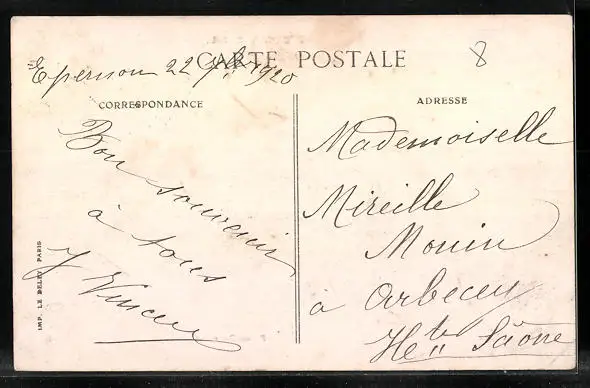 CARTE POSTALE
8
Epernon 22 7bre 1920
CORRESPONDANCE
Bon souvenir
à tous
J Vincent
ADRESSE
Mademoiselle
Mireille
Mouin
à Arbecey
Hte Saône
IMP. LE DELEY PARIS